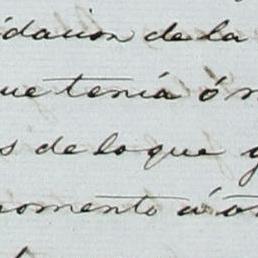 idacion de la
ue tenía ó n
s de lo que y
omento ú o